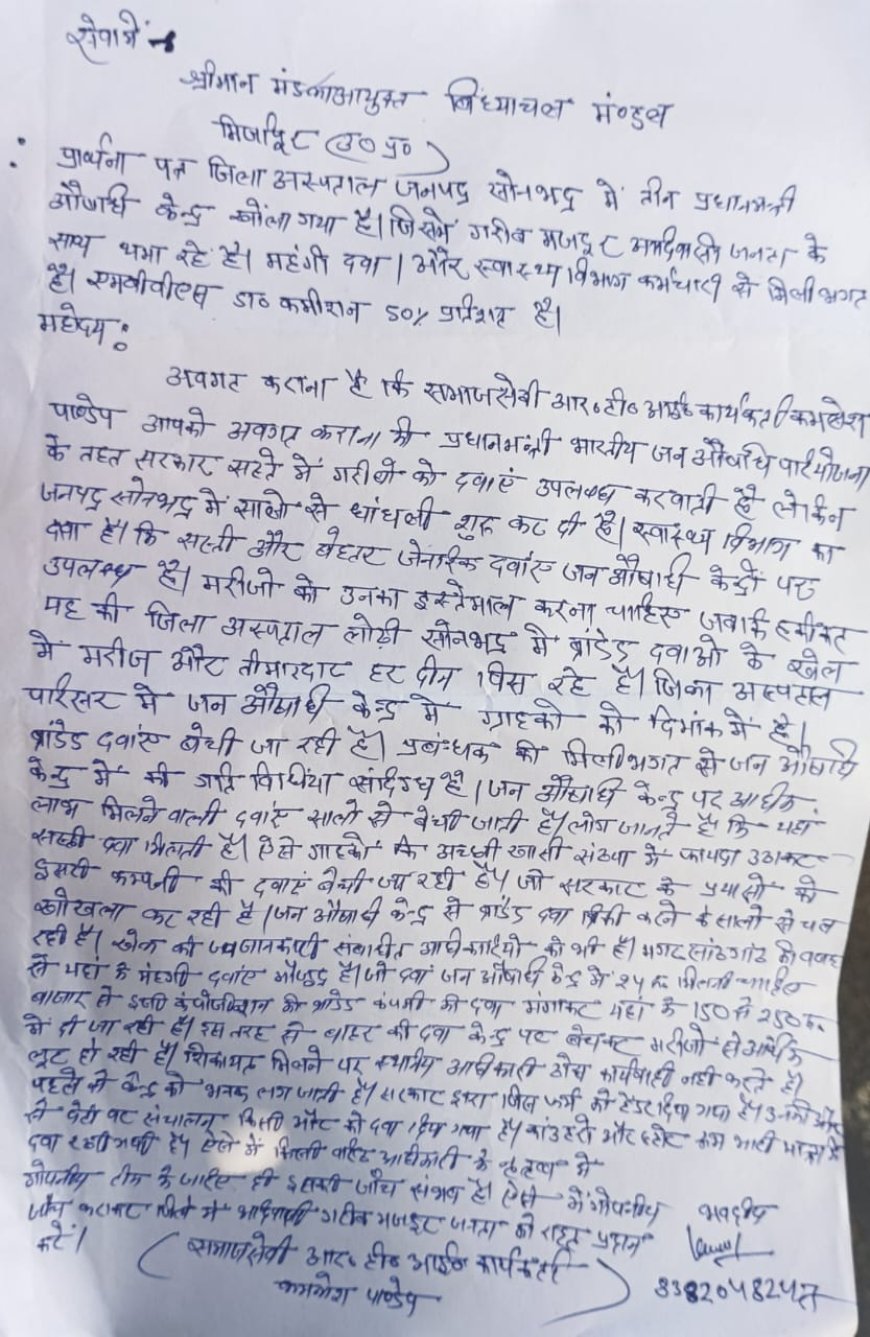 सेवामें
श्रीमान मंडलाआयुक्त बिंध्याचल मंण्डल
मिर्जापुर (उ० प्र०)
प्रार्थना पत्र जिला अस्पताल जनपद सोनभद्र में तीन प्रधानमन्त्री
औषधि केन्द्र खोला गया है। जिसमें गरीब मजदूर जनता के
साथ थमा रहे है। महंगी दवा। और स्वास्थ्य विभाग कर्मचारी से मिलीभगत
है। एमबीबीएस डा० कमीशन 50% प्रतिशत है।
महोदय:
अवगत कराना है कि समाजसेवी आर०टी०आई० कार्यकर्ता कमलेश
पाण्डेय आपको अवगत कराना की प्रधानमन्त्री भारतीय जन औषधि परियोजना
के तहत सरकार सस्ते में गरीबो को दवाएं उपलब्ध करवाती है लेकिन
जनपद सोनभद्र में सालो से धांधली शुरू कर दी है। स्वास्थ्य विभाग का
दावा है। कि सस्ती और बेहतर जेनरिक दवाएं जन औषधि केद्रो पर
उपलब्ध है। मरीजो को उनका इस्तेमाल करना चाहिए जबकि हकीकत
यह की जिला अस्पताल लोढ़ी सोनभद्र में ब्रांडेड दवाओ के खेल
में मरीज और तीमारदार हर दीन पिस रहे है। जिला अस्पताल
परिसर मे जन औषधि केन्द्र मे ग्राहको को दिमांक में है।
ब्रांडेड दवांए बेची जा रही है। प्रबंधक की मिलीभगत से जन औषधि
केन्द्र में की गति विधिंया संदिग्ध है। जन औषधि केन्द्र पर अधिक
लाभ मिलने वाली दवांए सालो से बेची जाती है। लोग जानते है कि यहां
सस्ती दवा मिलती है। ऐसे ग्राहको कि अच्छी खासी संख्या मे फायदा उठाकर
दुसरी कम्पनी की दवाएं बेची जा रही है। जो सरकार के प्रयासो को
खोखला कर रही है। जन औषधि केन्द्र से ब्रांडेड दवा बिक्री करने के सालो से चल
रही है। खेल की जानकारी संबंधित अधिकारियो को भी है। मगर सांठगांठ की वजह
से यहां के मंहगी दवांए मौजूद है। जो दवा जन औषधि केन्द्र में 24 रू मिलनी चाहिए
बाजार से इसी कंपोजिशन की ब्रांडेड कंपनी की दवा मंगाकर यहां के 150 से 250 रू
में दी जा रही है। इस तरह से बाहर की दवा केन्द्र पर बेचकर मरीजो से आर्थिक
लूट हो रही है। शिकायत मिलने पर स्थानीय अधिकारी ठोस कार्यवाही नही करते है।
पहले से केन्द्र को भनक लग जाती है। सरकार द्वारा जिस फर्म को टेंडर दिया गया है। उनकी ओर
से संचालन किसी और को दिया गया है।
दवा रखी गयी है। ऐसे में किसी वरिष्ठ अधिकारी के नेतृत्व में
गोपनीय टीम के जरिए ही इसकी जाँच संभव है। ऐसे में गोपनीय
जाँच कराकर जिले मे आदिवासी गरीब मजदूर जनता को राहत प्रदान
करें।
भवदीय
(समाजसेवी आर० टी० आई० कार्यकर्ता)
कमलेश पाण्डेय